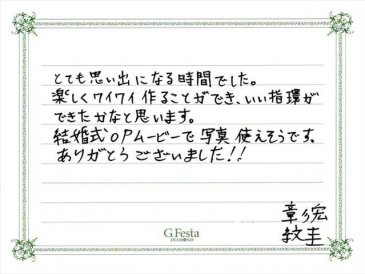 とても思い出になる時間でした。
楽しくワイワイ作ることができ、いい指環が
できたかなと思います。
結婚式OPムービーで写真使えそうです。
ありがとうございました!!
G.Festa
DIAMOND